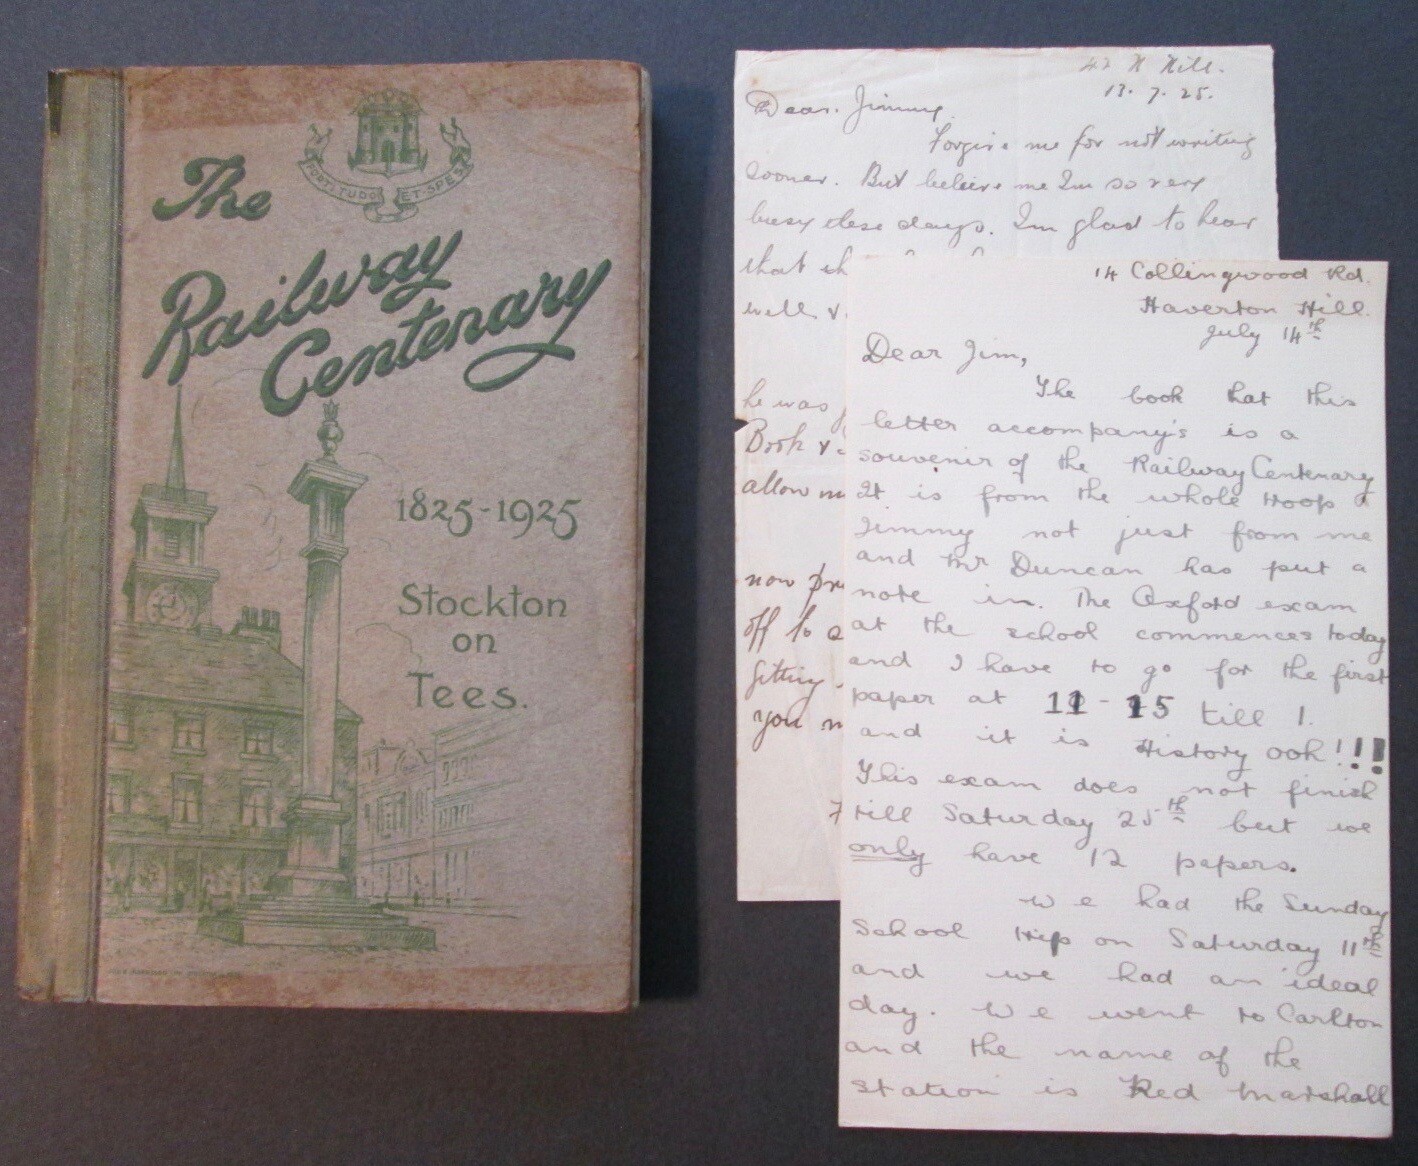 The
Railway
Centenary
FORTITUDO ET-SPES
1825-1925
Stockton
on
Tees.
42 H Hill.
13. 7. 25.
Dear. Jimmy
Forgive me for not writing
sooner. But believe me Im so very
busy these days. Im glad to hear
that
well &
he was
Book &
allow
now
off to
sitting
you
14 Collingwood Rd.
Haverton Hill.
July 14th
Dear Jim,
The book that this
letter accompany's is a
souvenir of the Railway Centenary
It is from the whole troop
Jimmy not just from me
and Mr Duncan has put a
note in. The Oxford exam
at the school commences today
and I have to go for the first
paper at 11-15 till 1.
and it is History ooh!!!!
This exam does not finish
till Saturday 25th but we
only have 12 papers.
We had the Sunday
School trip on Saturday 11th
and we had an ideal
day. We went to Carlton
and the name of the
station is Red Marshall